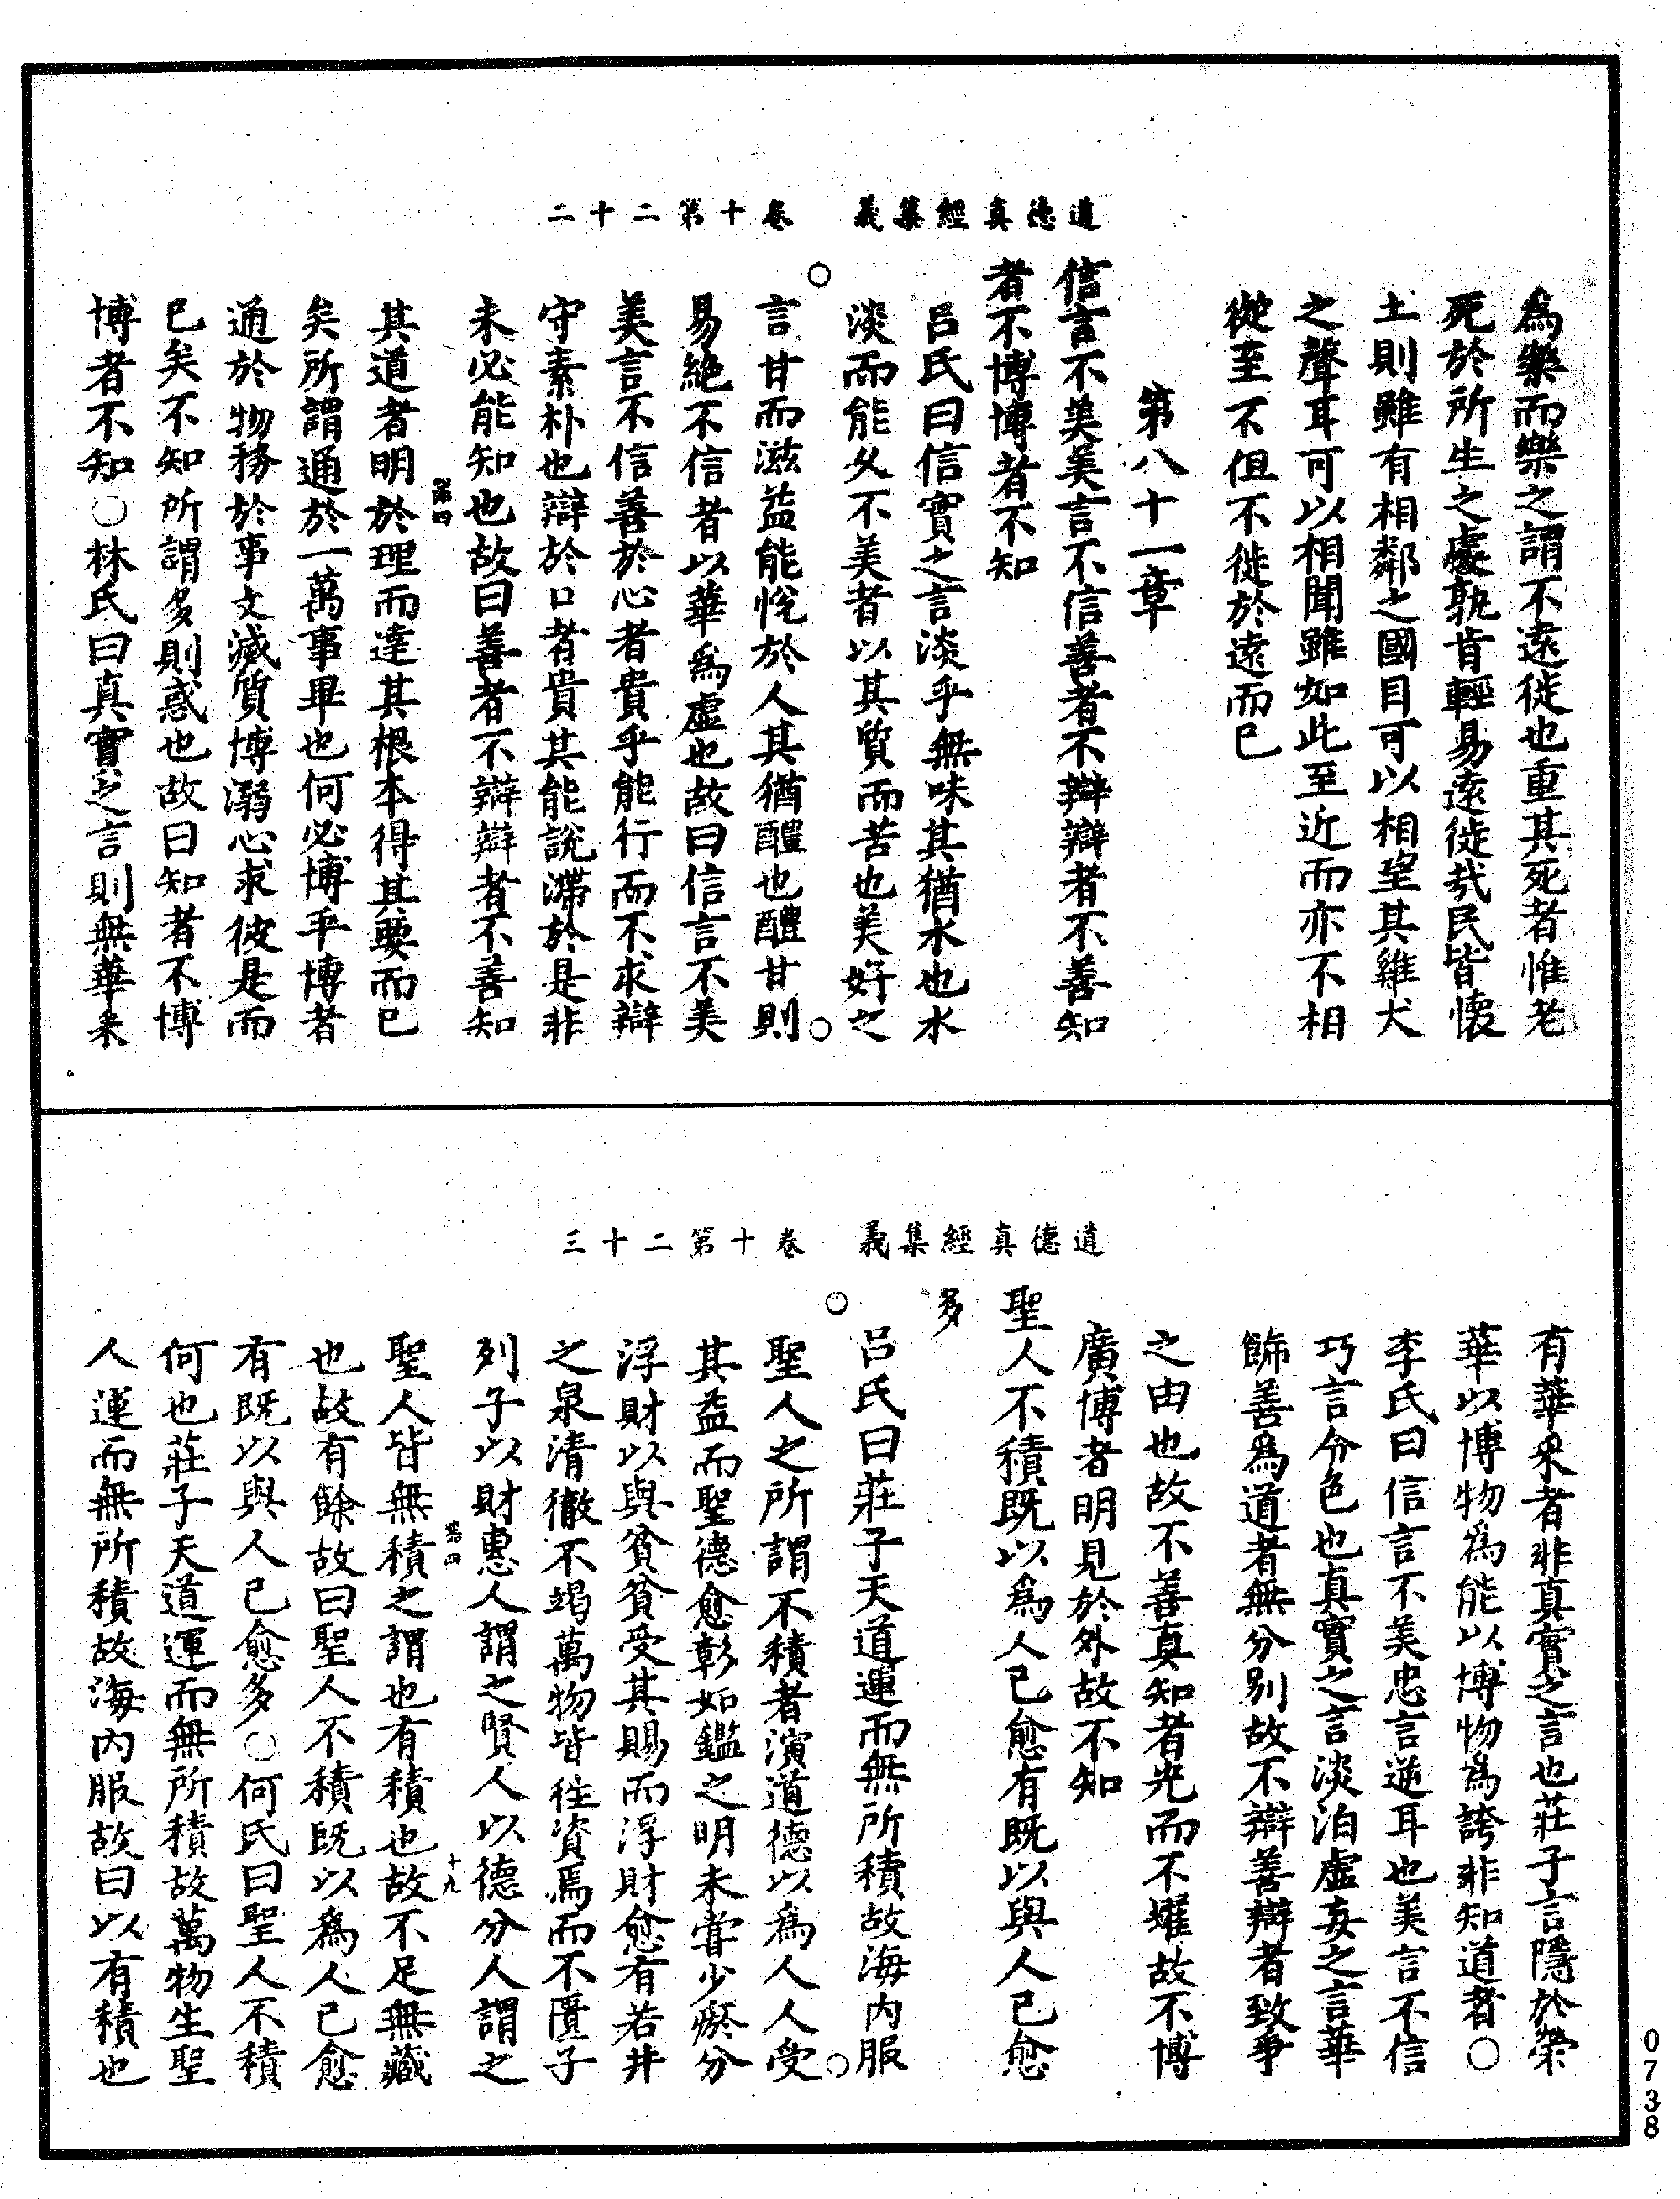 道德真經集義　卷十第二十二
爲樂而樂之謂不遠徙也重其死者惟老
死於所生之處孰肯輕易遠徙哉民皆懷
土則雖有相鄰之國目可以相望其雞犬
之聲耳可以相聞雖如此至近而亦不相
從至不但不徙於遠而已
第八十一章
信言不美美言不信善者不辯辯者不善知
者不博博者不知
呂氏曰信實之言淡乎無味其猶水也水
淡而能久不美者以其質而苦也美好之
言甘而滋益能悅於人其猶醴也醴甘則
易絶不信者以華爲虛也故曰信言不美
美言不信善於心者貴乎能行而不求辯
守素朴也辯於口者貴其能說滯於是非
未必能知也故曰善者不辯辯者不善知
其道者明於理而達其根本得其要而已
矣所謂通於一萬事畢也何必博乎博者
通於物務於事文滅質博溺心求彼是而
已矣不知所謂多則惑也故曰知者不博
博者不知○林氏曰真實之言則無華采
道德真經集義　卷十第二十三
有華采者非真實之言也莊子言隱於榮
華以博物爲能以博物爲誇非知道者○
李氏曰信言不美忠言逆耳也美言不信
巧言令色也真實之言淡泊虛妄之言華
飾善爲道者無分別故不辯善辯者致爭
之由也故不善真知者光而不燿故不博
廣博者明見於外故不知
聖人不積既以爲人已愈有既以與人已愈
多
呂氏曰莊子天道運而無所積故海内服
聖人之所謂不積者演道德以爲人人受
其益而聖德愈彰如鑑之明未甞少瘀分
浮財以與貧貧受其賜而浮財愈有若井
之泉清徹不竭萬物皆往資焉而不匱子
列子以財惠人謂之賢人以德分人謂之
聖人皆無積之謂也有積也故不足無藏
也故有餘故曰聖人不積既以爲人已愈
有既以與人已愈多○何氏曰聖人不積
何也莊子天道運而無所積故萬物生聖
人運而無所積故海内服故曰以有積也
0738